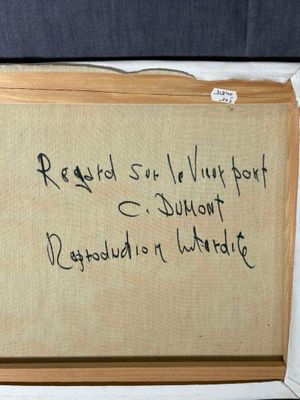 Regard sur le Vieux port
C. DUMONT
Reproduction Interdite